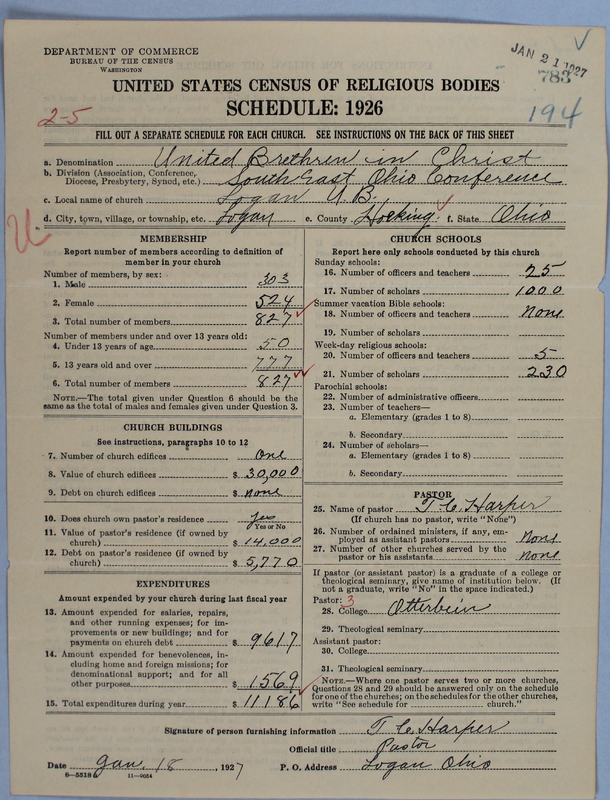 DEPARTMENT OF COMMERCE
BUREAU OF THE CENSUS
WASHINGTON
JAN 21 1927
783
UNITED STATES CENSUS OF RELIGIOUS BODIES
SCHEDULE: 1926
2-5
194
FILL OUT A SEPARATE SCHEDULE FOR EACH CHURCH. SEE INSTRUCTIONS ON THE BACK OF THIS SHEET
a. Denomination United Brethren in Christ
b. Division (Association, Conference,
Diocese, Presbytery, Synod, etc.) South East Ohio Conference
c. Local name of church Logan U.B.
d. City, town, village, or township, etc. Logan e. County Hocking f. State Ohio
U
MEMBERSHIP
Report number of members according to definition of
member in your church
Number of members, by sex:
1. Male 303
2. Female 524
3. Total number of members 827
Number of members under and over 13 years old:
4. Under 13 years of age 50
5. 13 years old and over 777
6. Total number of members 827
NOTE.—The total given under Question 6 should be the
same as the total of males and females given under Question 3.
CHURCH BUILDINGS
See instructions, paragraphs 10 to 12
7. Number of church edifices One
8. Value of church edifices $ 30,000
9. Debt on church edifices $ None
10. Does church own pastor's residence Yes
Yes or No
11. Value of pastor's residence (if owned by
church) $ 14,000
12. Debt on pastor's residence (if owned by
church) $ 5,770
EXPENDITURES
Amount expended by your church during last fiscal year
13. Amount expended for salaries, repairs,
and other running expenses; for im-
provements or new buildings; and for
payments on church debt $ 9617
14. Amount expended for benevolences, in-
cluding home and foreign missions; for
denominational support; and for all
other purposes $ 1569
15. Total expenditures during year $ 11186
CHURCH SCHOOLS
Report here only schools conducted by this church
Sunday schools:
16. Number of officers and teachers 25
17. Number of scholars 1000
Summer vacation Bible schools:
18. Number of officers and teachers None
19. Number of scholars
Week-day religious schools:
20. Number of officers and teachers 5
21. Number of scholars 230
Parochial schools:
22. Number of administrative officers
23. Number of teachers—
a. Elementary (grades 1 to 8)
b. Secondary
24. Number of scholars—
a. Elementary (grades 1 to 8)
b. Secondary
PASTOR
25. Name of pastor T. C. Harper
(If church has no pastor, write "None")
26. Number of ordained ministers, if any, em-
ployed as assistant pastors None
27. Number of other churches served by the
pastor or his assistants None
If pastor (or assistant pastor) is a graduate of a college or
theological seminary, give name of institution below. (If
not a graduate, write "No" in the space indicated.)
Pastor: 3
28. College Otterbein
29. Theological seminary
Assistant pastor:
30. College
31. Theological seminary
NOTE.—Where one pastor serves two or more churches,
Questions 28 and 29 should be answered only on the schedule
for one of the churches; on the schedules for the other churches,
write "See schedule for church."
Signature of person furnishing information T. C. Harper
Official title Pastor
Date Jan. 18, 1927 P. O. Address Logan Ohio
11—9054